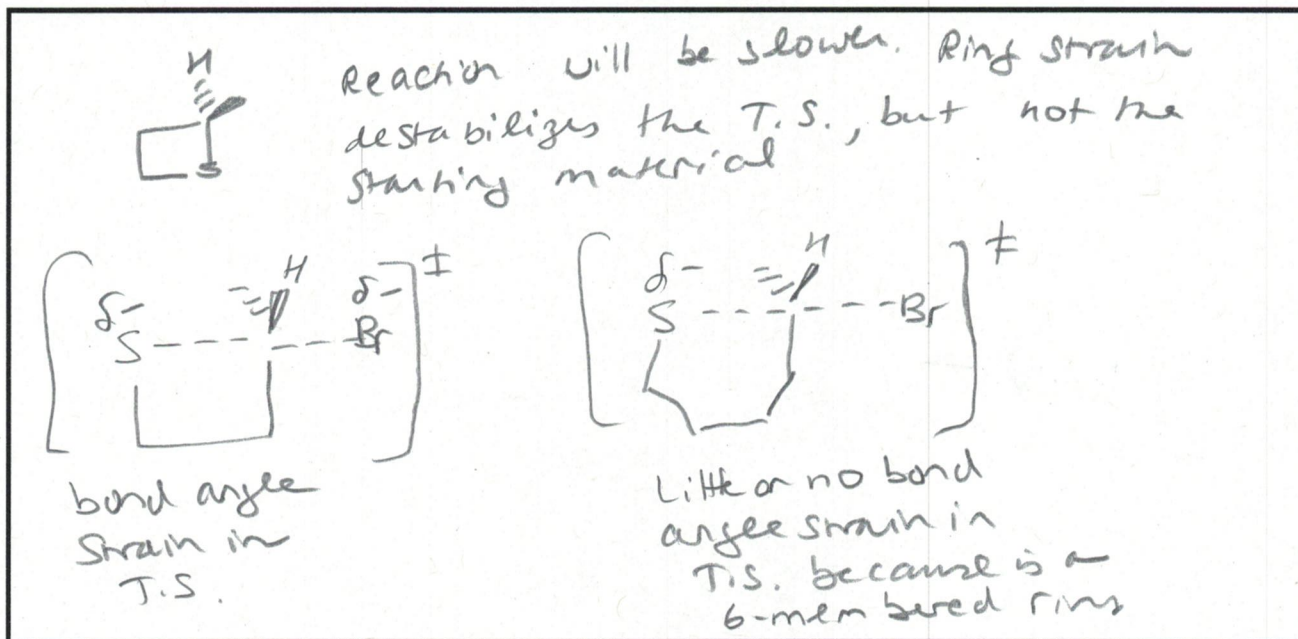 H
Reaction will be slower. Ring strain
destabilizes the T.S., but not the
starting material
S
‡
H
δ-
δ-
S
Br
‡
H
δ-
S
Br
bond angle
strain in
T.S.
Little or no bond
angle strain in
T.S. because is a
6-membered ring